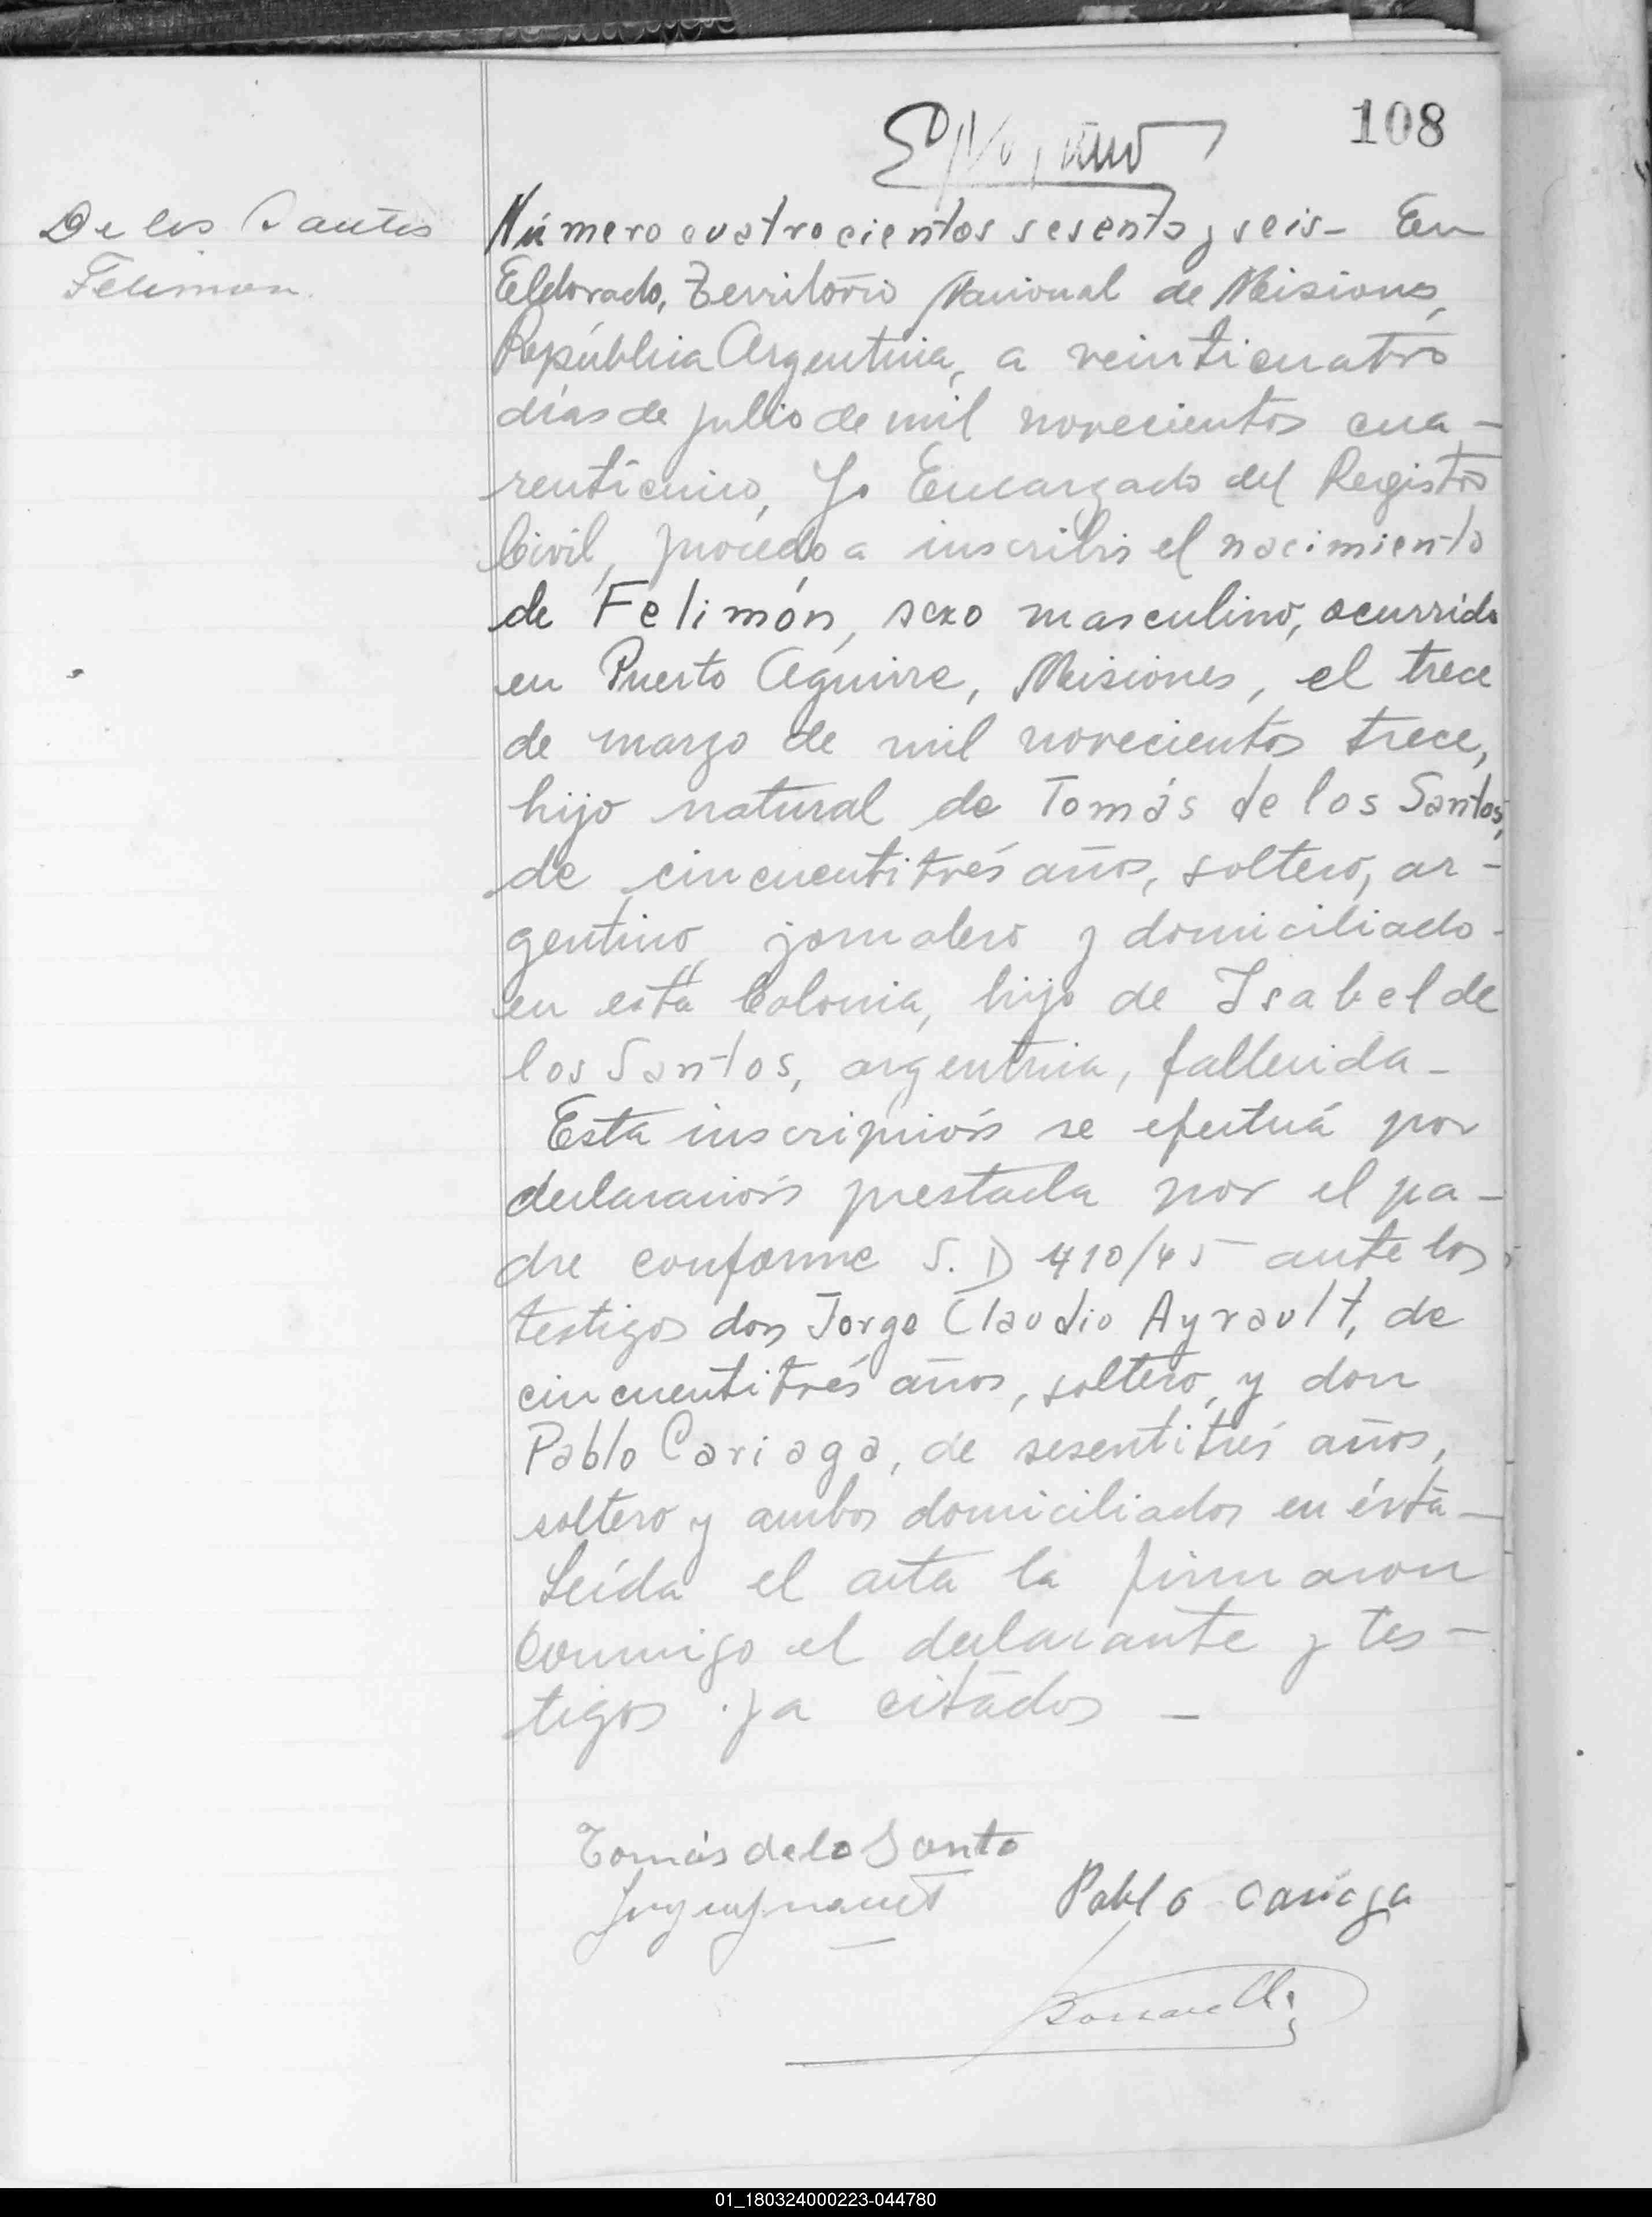 108
De los Santos
Felimon.
Número cuatrocientos sesenta y seis - En
Eldorado, Territorio Nacional de Misiones,
República Argentina, a veinticuatro
días de julio de mil novecientos cua-
renticinco, Yo Encargado del Registro
Civil, procedo a inscribir el nacimiento
de Felimón, sexo masculino, ocurrido
en Puerto Aguirre, Misiones, el trece
de marzo de mil novecientos trece,
hijo natural de Tomás de los Santos,
de cincuentitrés años, soltero, ar-
gentino, jornalero y domiciliado
en esta Colonia, hijo de Isabel de
los Santos, argentina, fallecida -
Esta inscripción se efectuá por
declaración prestada por el pa-
dre conforme S. D 410/45 ante los
testigos don Jorge Claudio Ayrault, de
cincuentitrés años, soltero, y don
Pablo Cariaga, de sesentitrés años,
soltero y ambos domiciliados en ésta -
Leída el acta la firmaron
conmigo el declarante y tes-
tigos ya citados -
Tomás de lo Santo
Pablo Cariaga
01_180324000223-044780